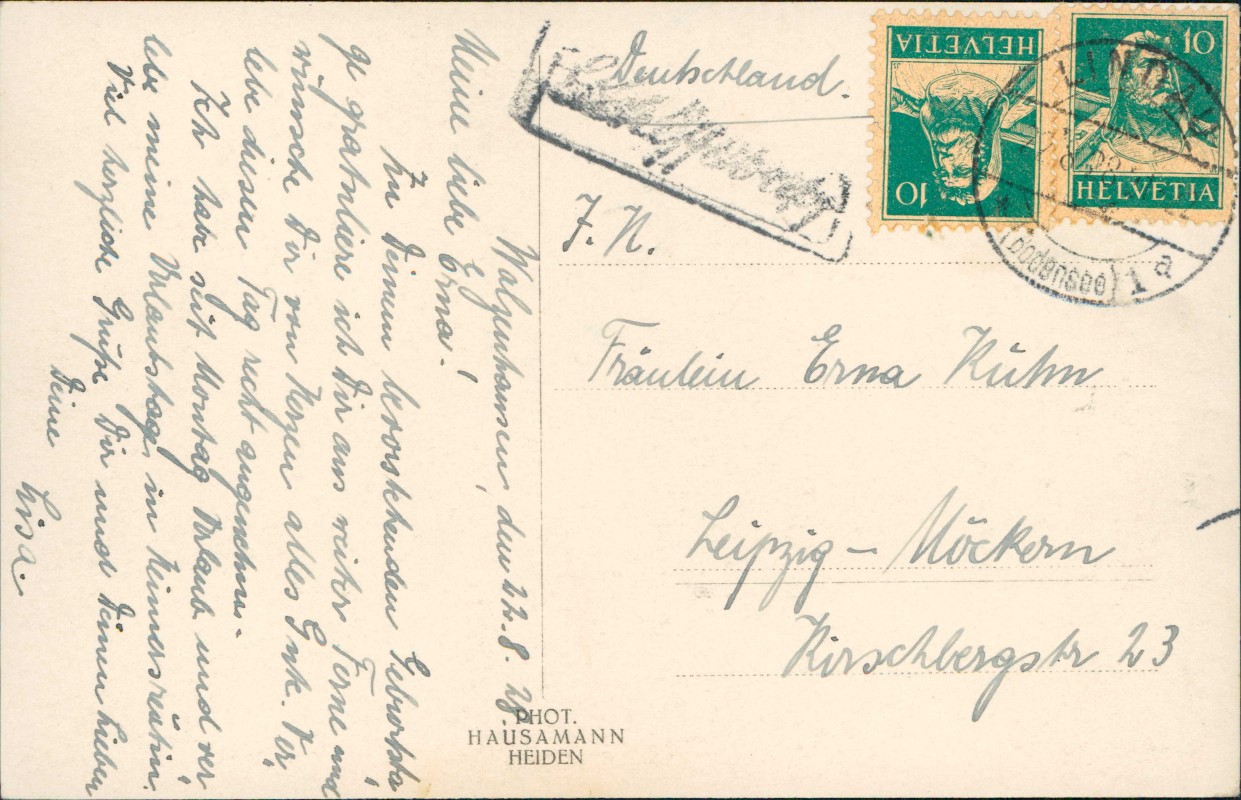 Walzenhausen, den 22.8.28.
Meine liebe Erna!
Zu Deinem bevorstehenden Geburtsta
ge gratuliere ich Dir aus weiter Ferne und
wünsche Dir von Herzen alles Gute. Ver
lebe diesen Tag recht angenehm.
Ich habe seit Montag Urlaub und ver
lebe meine Urlaubstage in
Viel herzliche Grüße Dir und Deinen Lieben
Deine
Lisa.
Deutschland.
HELVETIA
10
10
HELVETIA
LINDAU
(Bodensee) 1 a
Fräulein Erna Kühn
Leipzig-Möckern
Kirschbergstr 23
PHOT.
HAUSAMANN
HEIDEN